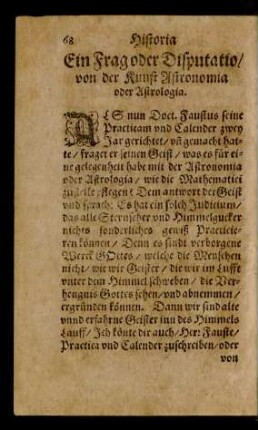 68 Historia
Ein Frag oder Disputatio/
von der Kunst Astronomia
oder Astrologia.
ALS nun Doct. Faustus seine
Practicam vnd Calender zwey
Jar gerichtet/ vñ gemacht hat-
te/ fraget er seinen Geist/ was es für ei-
ne gelegenheit habe mit der Astronomia
oder Astrologia/ wie die Mathematici
zustellen Dem antwort der Geist
vnd sprach: Es hat ein solch Juditium/
das alle Sternseher vnd Himmelgucker
nichts sonderliches gewiß Practicie-
ren können/ Denn es sindt verborgene
Werck GOttes/ welche die Menschen
nicht/ wie wir Geister/ die wir im Lufft
vnter dem Himmel schweben/ die Ver-
hengnus Gottes sehen/ vnd abnemmen/
ergründen können. Dann wir sind alte
vnnd erfahrne Geister inn des Himmels
Lauff/ Ich könte dir auch/ Herr Fauste/
Practica vnd Calender zuschreiben/ oder
von